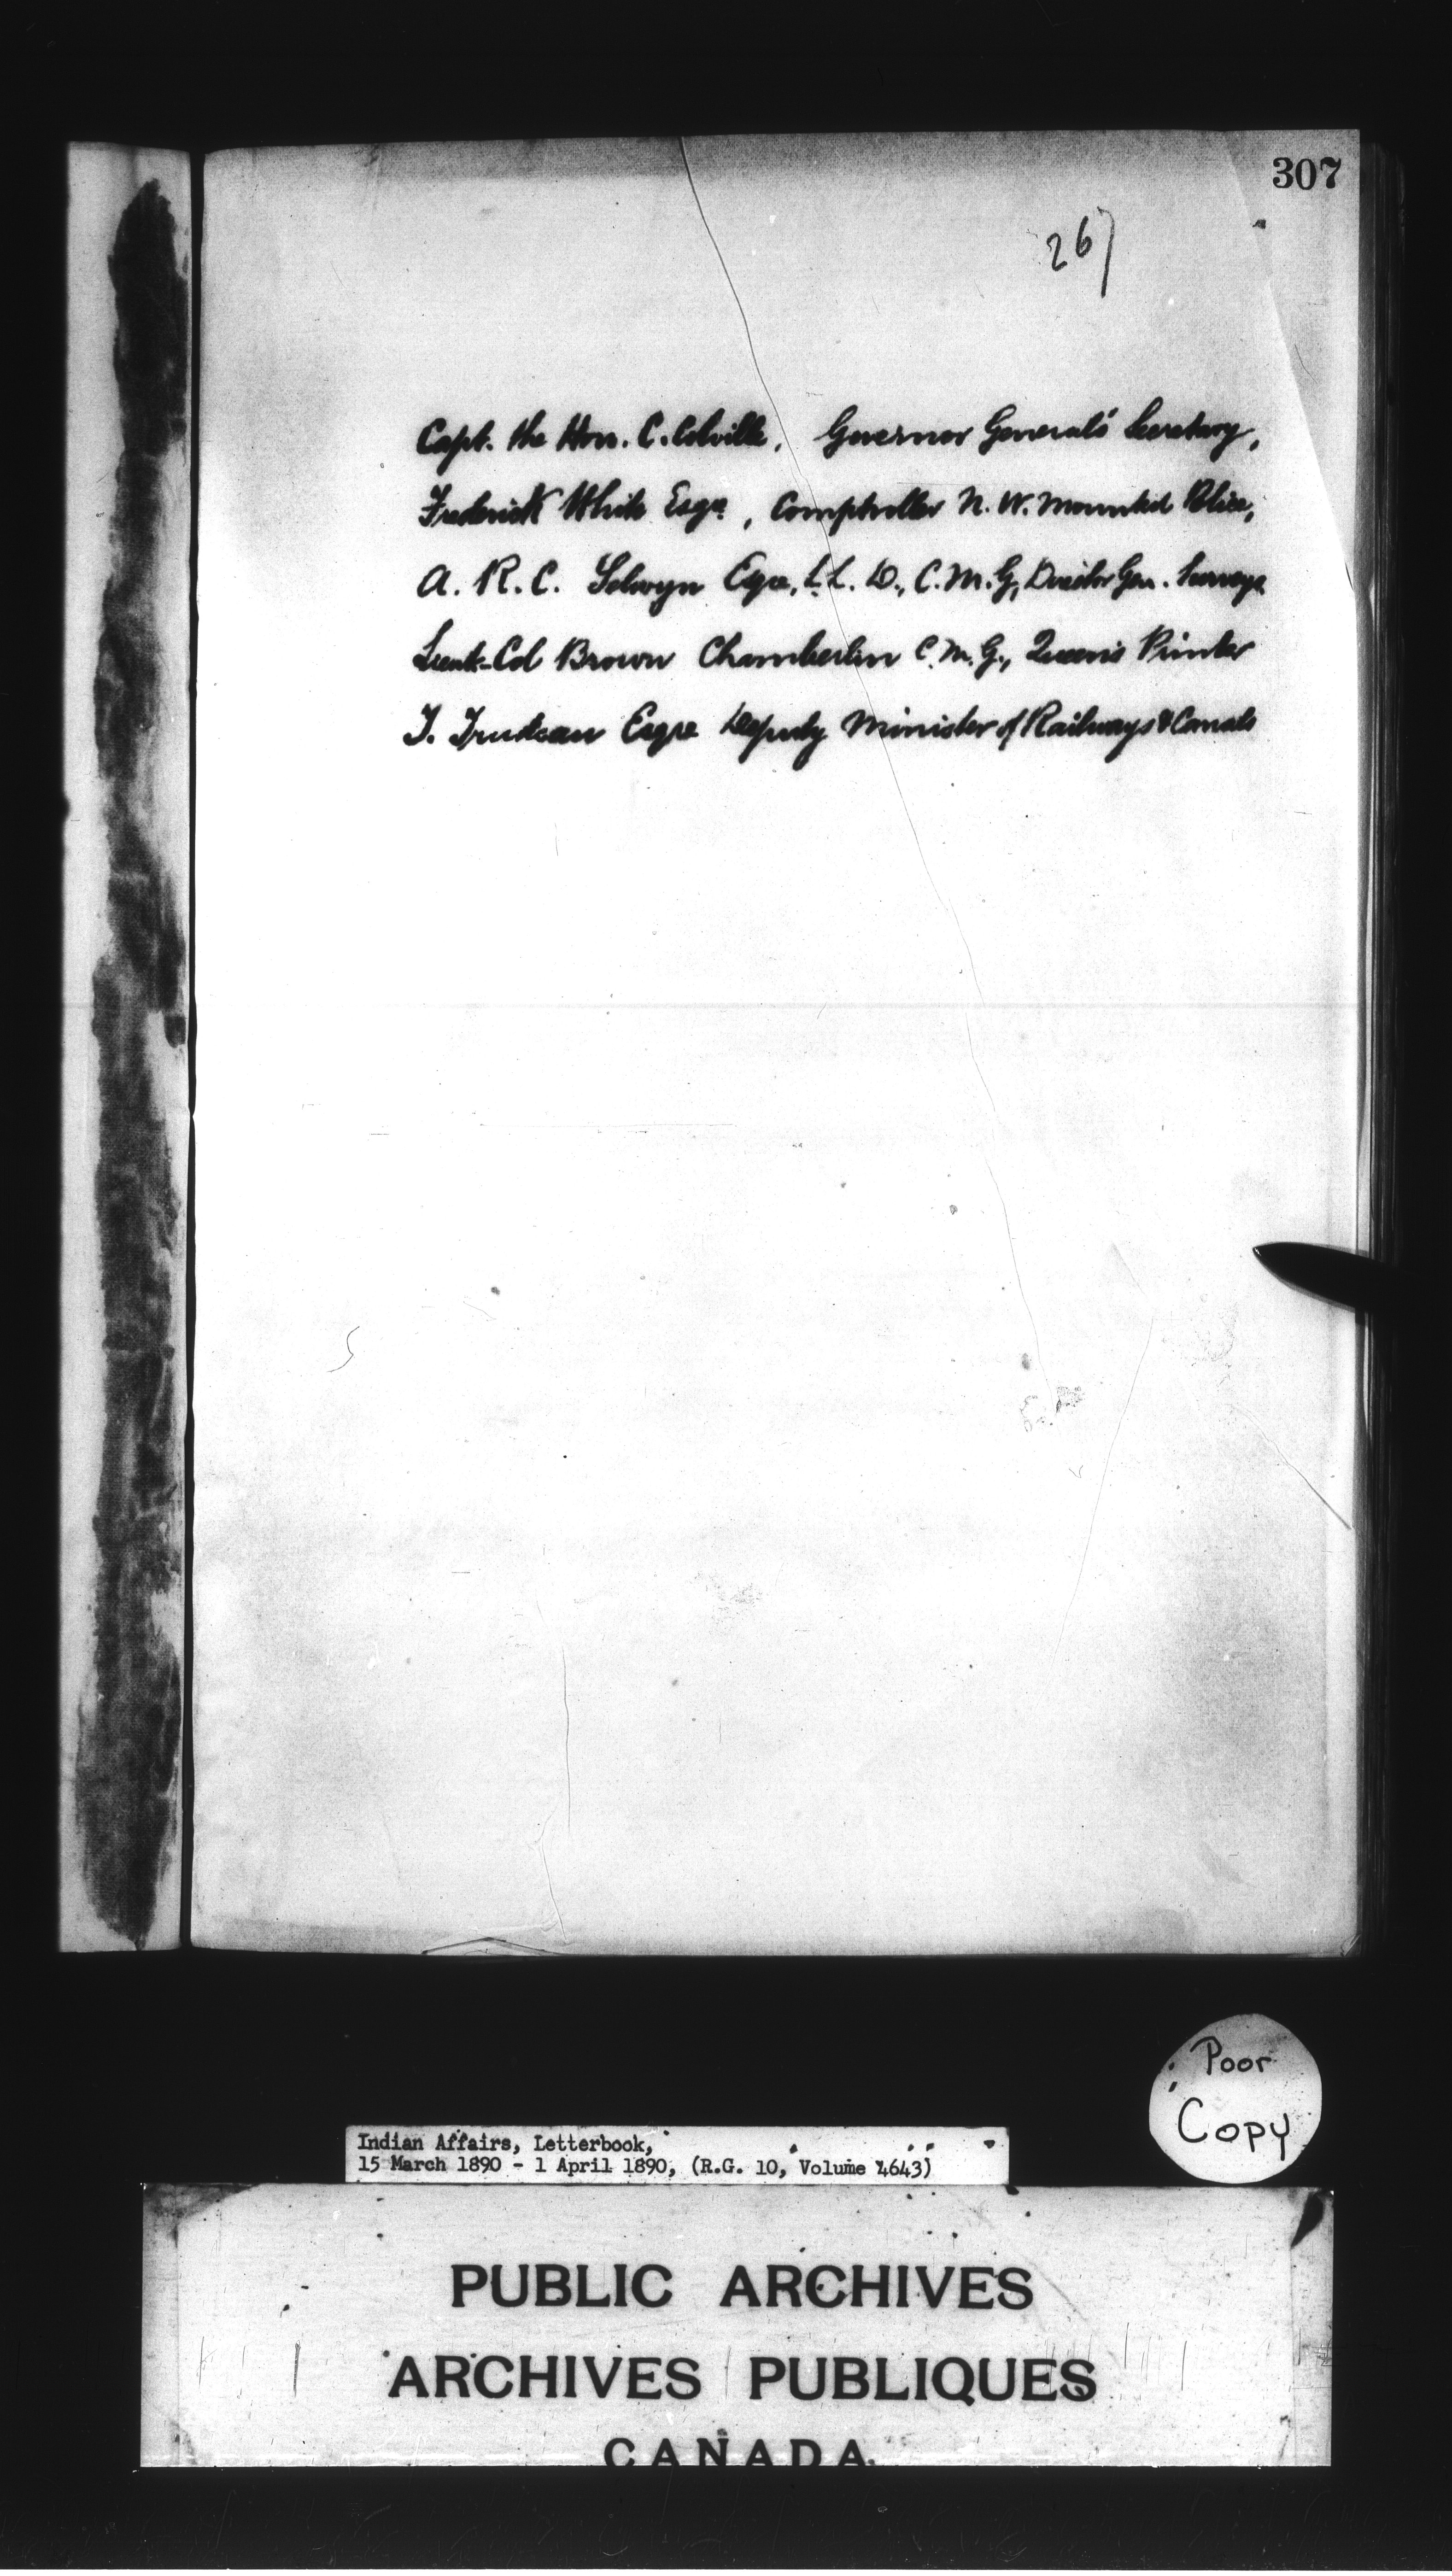 307
267
Capt. the Hon. C. Colville, Governor General's Secretary,
Frederick White Esqre, Comptroller N. W. Mounted Police,
A. R. C. Selwyn Esqre, L.L. D., C.M.G, Director Gen. Surveys
Lieut-Col Brown Chamberlin C.M.G., Queen's Printer
T. Trudeau Esqre Deputy Minister of Railways & Canals
Poor
Copy
Indian Affairs, Letterbook,
15 March 1890 - 1 April 1890, (R.G. 10, Volume 4643)
PUBLIC ARCHIVES
ARCHIVES PUBLIQUES
CANADA